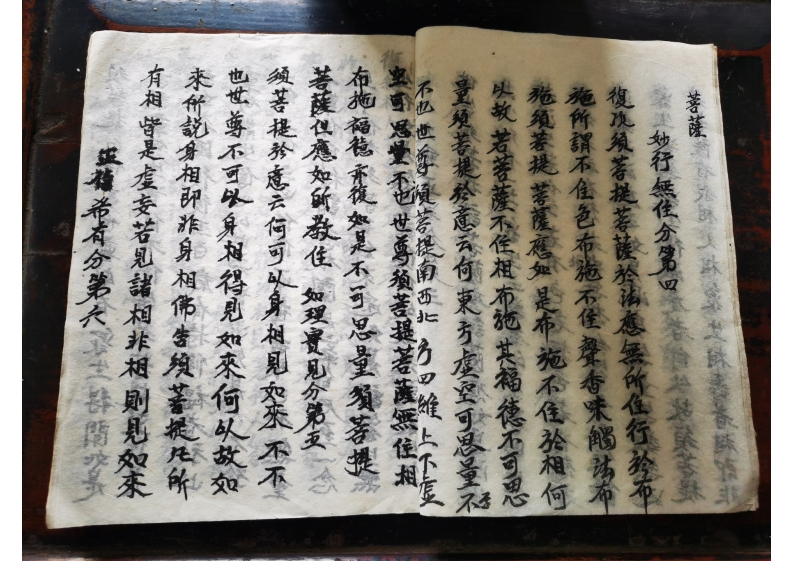 菩薩
妙行無住分第四
復次須菩提菩薩於法應無所住行於布
施所謂不住色布施不住聲香味觸法布
施須菩提菩薩應如是布施不住於相何
以故若菩薩不住相布施其福德不可思
量須菩提於意云何東方虛空可思量不
不也世尊須菩提南西北方四維上下虛
空可思量不也世尊須菩提菩薩無住相
布施福德亦復如是不可思量須菩提
菩薩但應如所教住 如理實見分第五
須菩提於意云何可以身相見如來不不
也世尊不可以身相得見如來何以故如
來所說身相即非身相佛告須菩提凡所
有相皆是虛妄若見諸相非相則見如來
正希有分第六